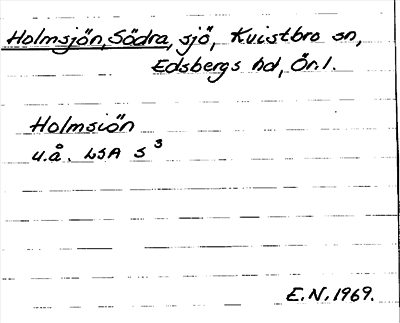 Holmsjön, Södra, sjö, Kvistbro sn,
Edsbergs hd, Ör. l.
Holmsiön
u.å. LSA S 3
E.N. 1969.